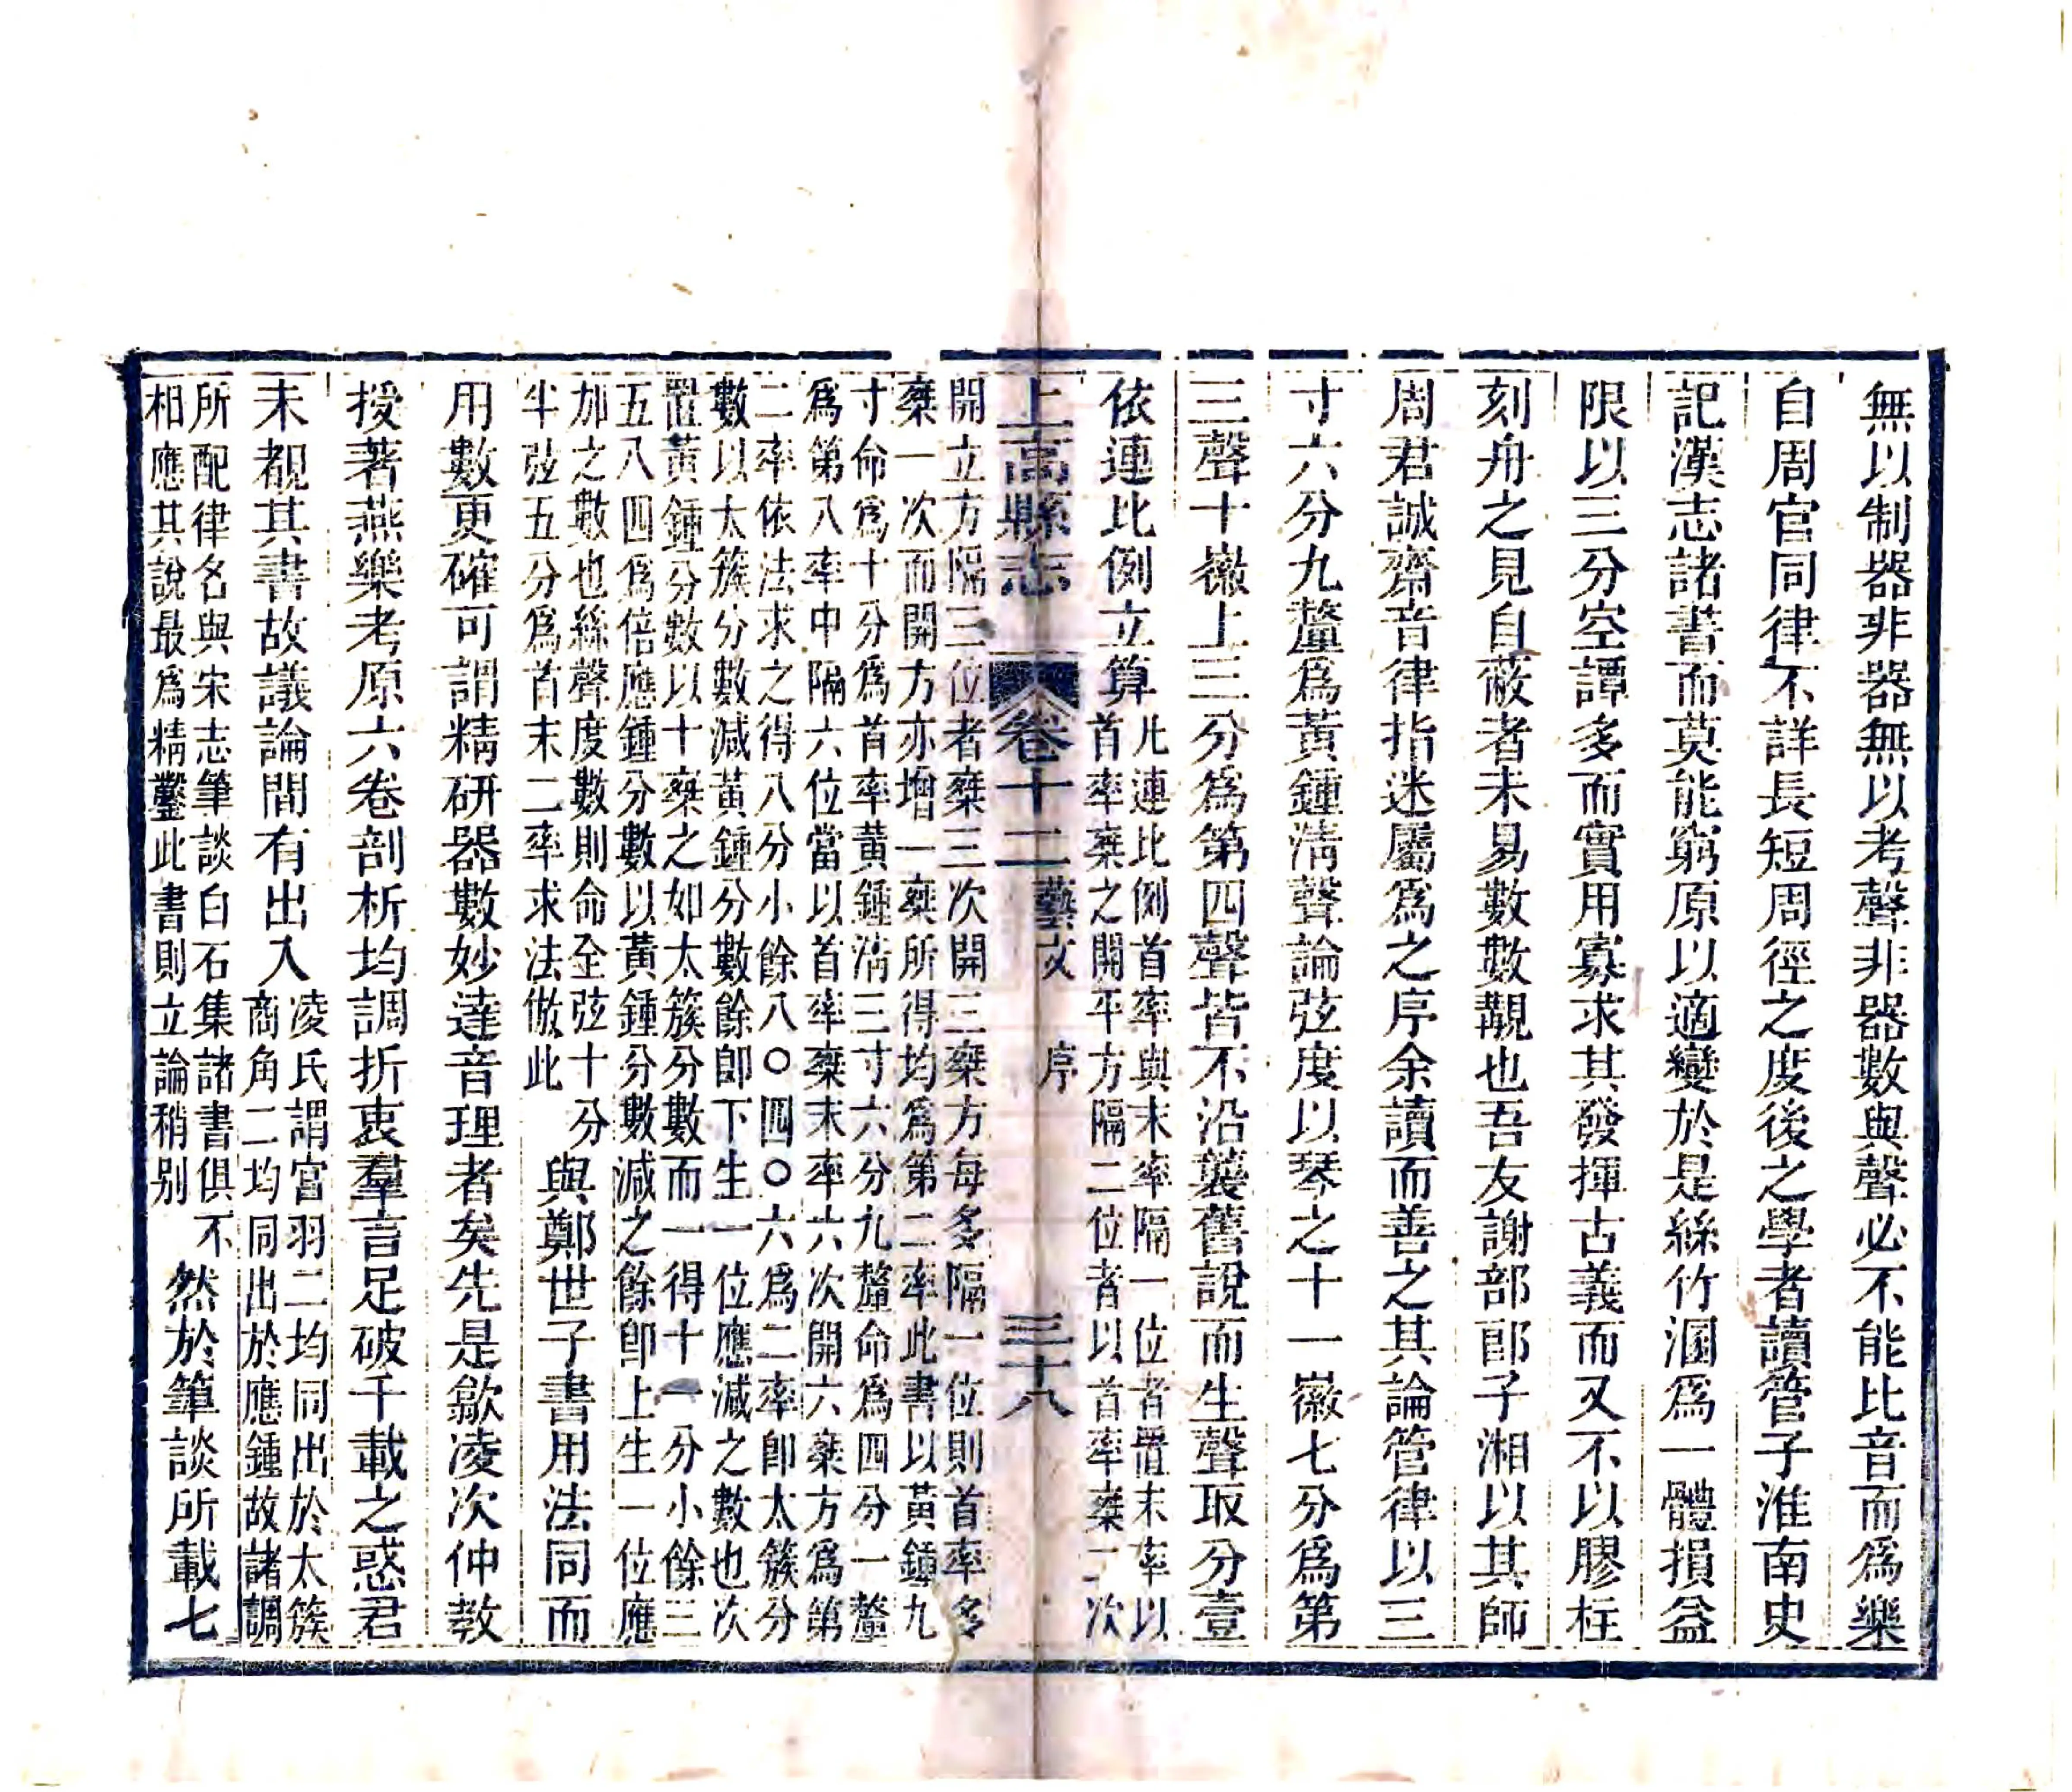 無以制器非器無以考聲非器數與聲必不能比音而爲樂
自周官同律不詳長短周徑之度後之學者讀管子淮南史
記漢志諸書而莫能窮原以適變於是絲竹溷爲一體損益
限以三分空譚多而實用寡求其發揮古義而又不以膠柱
刻舟之見自蔽者未易數數覯也吾友謝部郎子湘以其師
周君誠齋音律指迷屬爲之序余讀而善之其論管律以三
寸六分九釐爲黃鍾清聲論弦度以琴之十一徽七分爲第
三聲十徽上三分爲第四聲皆不沿襲舊說而生聲取分壹
依連比例立算
凡連比例首率與末率隔一位者置末率以
首率乘之開平方隔二位者以首率乘二次
開立方隔三位者乘三次開三乘方每多隔一位則首率多
乘一次而開方亦增一乘所得均爲第二率此書以黃鍾九
寸命爲十分爲首率黃鍾清三寸六分九釐命爲四分一釐
爲第八率中隔六位當以首率乘末率六次開六乘方爲第
二率依法求之得八分小餘八〇四〇六爲二率卽太簇分
數以太簇分數減黃鍾分數餘卽下生一位應減之數也次
置黃鍾分數以十乘之如太簇分數而一得十一分小餘三
五八四爲倍應鍾分數以黃鍾分數減之餘卽上生一位應
加之數也絲聲度數則命全弦十分
半弦五分爲首末二率求法倣此
與鄭世子書用法同而
用數更確可謂精研器數妙達音理者矣先是歙凌次仲教
授著燕樂考原六卷剖析均調折衷羣言足破千載之惑君
未覩其書故議論間有出入
凌氏謂宮羽二均同出於太簇
商角二均同出於應鍾故諸調
所配律名與宋志筆談白石集諸書俱不
相應其說最爲精鑿此書則立論稍別
然於筆談所載七
上高縣志
卷十二
藝文
序
三十八